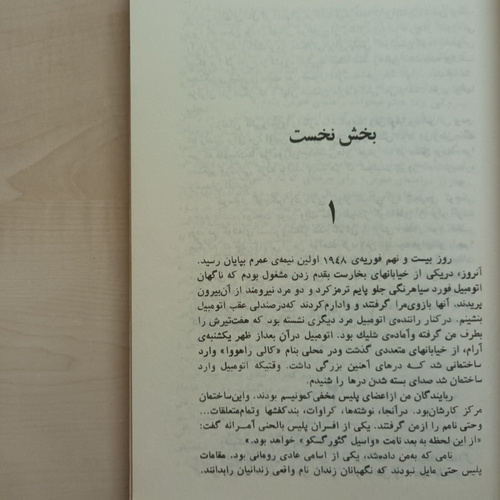 بخش نخست
۱
روز بیست و نهم فوریه‌ی ۱۹۴۸ اولین نیمه‌ی عمرم بپایان رسید.
آنروز، دریکی از خیابانهای بخارست بقدم زدن مشغول بودم که ناگهان
اتومبیل فورد سیاهرنگی جلو پایم ترمزکرد و دو مرد نیرومند از آن‌بیرون
پریدند. آنها بازوی‌مرا گرفتند و وادارم‌کردند که‌درصندلی عقب اتومبیل
بنشینم. درکنار راننده‌ی اتومبیل مرد دیگری نشسته بود که هفت‌تیرش را
بطرف من گرفته وآماده‌ی شلیك بود. اتومبیل درآن بعداز ظهر یکشنبه‌ی
آرام، از خیابانهای متعددی گذشت ودر محلی بنام «کالی راهووا» وارد
ساختمانی شد کـه درهای آهنین بزرگی داشت. وقتیکه اتومبیل وارد
ساختمان شد صدای بسته شدن درها را شنیدم.
ربایندگان من ازاعضای پلیس مخفی‌کمونیسم بودند. واین‌ساختمان
مرکز کارشان‌بود. درآنجا، نوشته‌ها، کراوات، بندکفشها وتمام‌متعلقات...
وحتی نامم را ازمن گرفتند. یکی از افسران پلیس بالحنی آمرانه گفت:
«از این لحظه به بعد نامت «واسیل گئورگسکو» خواهد بود.»
نامی که به‌من داده‌شد، یکی از اسامی عادی رومانی بود. مقامات
پلیس حتی مایل نبودند که نگهبانان زندان نام واقعی زندانیان رابدانند.